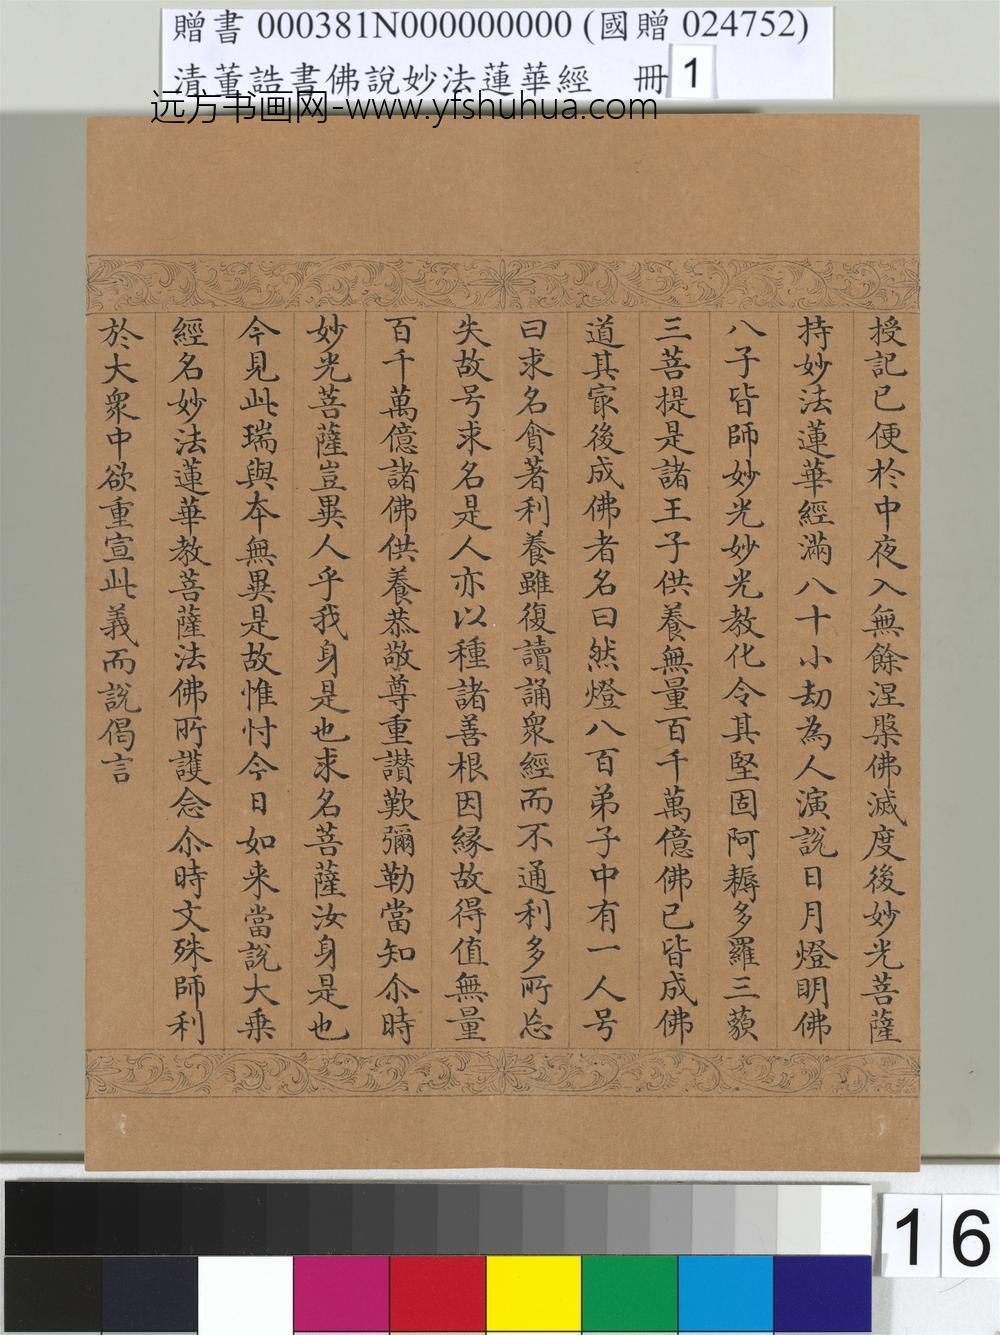 贈書 000381N000000000 (國贈 024752)
清董誥書佛說妙法蓮華經 冊 1
远方书画网-www.yfshuhua.com
授記已便於中夜入無餘涅槃佛滅度後妙光菩薩
持妙法蓮華經滿八十小劫為人演說日月燈明佛
八子皆師妙光妙光教化令其堅固阿耨多羅三藐
三菩提是諸王子供養無量百千萬億佛已皆成佛
道其冣後成佛者名曰然燈八百弟子中有一人号
曰求名貪著利養雖復讀誦衆經而不通利多所忘
失故号求名是人亦以種諸善根因緣故得值無量
百千萬億諸佛供養恭敬尊重讃歎彌勒當知尒時
妙光菩薩豈異人乎我身是也求名菩薩汝身是也
今見此瑞與本無異是故惟忖今日如来當說大乗
經名妙法蓮華教菩薩法佛所護念尒時文殊師利
於大衆中欲重宣此義而說偈言
16